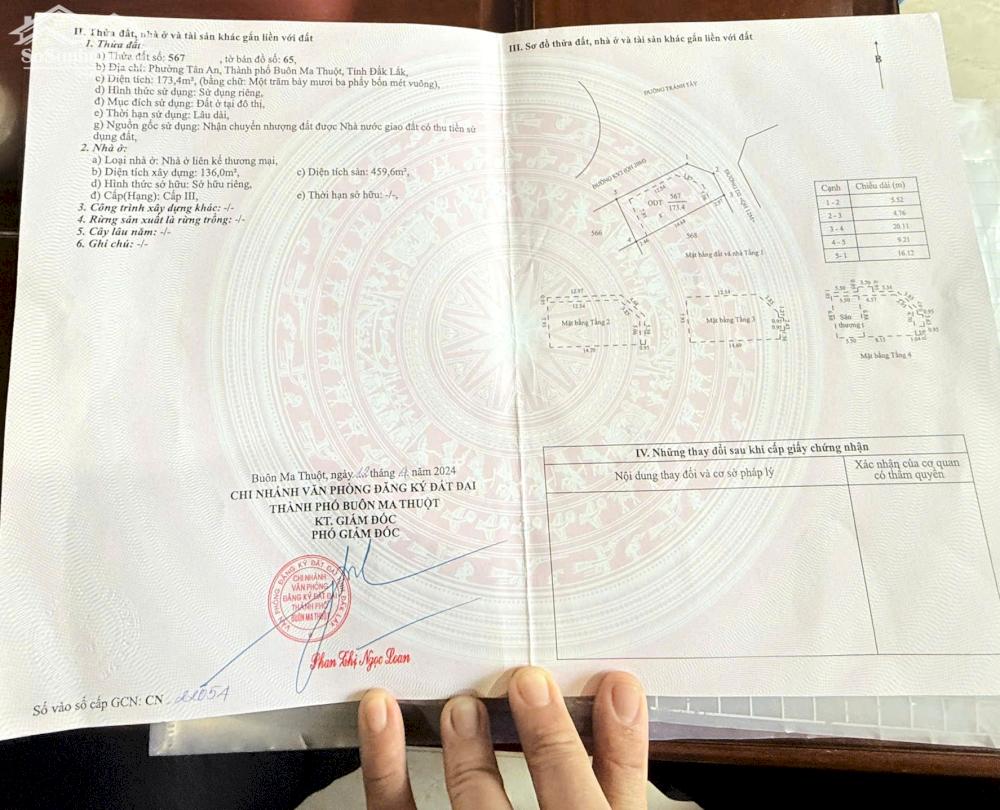 II. Thửa đất, nhà ở và tài sản khác gắn liền với đất
1. Thửa đất:
a) Thửa đất số: 567 , tờ bản đồ số: 65,
b) Địa chỉ: Phường Tân An, Thành phố Buôn Ma Thuột, Tỉnh Đắk Lắk,
c) Diện tích: 173,4m², (bằng chữ: Một trăm bảy mươi ba phẩy bốn mét vuông),
d) Hình thức sử dụng: Sử dụng riêng,
đ) Mục đích sử dụng: Đất ở tại đô thị,
e) Thời hạn sử dụng: Lâu dài,
g) Nguồn gốc sử dụng: Nhận chuyển nhượng đất được Nhà nước giao đất có thu tiền sử
dụng đất,
2. Nhà ở:
a) Loại nhà ở: Nhà ở liên kế thương mại,
b) Diện tích xây dựng: 136,0m², c) Diện tích sàn: 459,6m²,
d) Hình thức sở hữu: Sở hữu riêng,
đ) Cấp(Hạng): Cấp III, e) Thời hạn sở hữu: -/-,
3. Công trình xây dựng khác: -/-
4. Rừng sản xuất là rừng trồng: -/-
5. Cây lâu năm: -/-
6. Ghi chú: -/-
Buôn Ma Thuột, ngày tháng năm 2024
CHI NHÁNH VĂN PHÒNG ĐĂNG KÝ ĐẤT ĐAI
THÀNH PHỐ BUÔN MA THUỘT
KT. GIÁM ĐỐC
PHÓ GIÁM ĐỐC
CHI NHÁNH
VĂN PHÒNG
ĐĂNG KÝ ĐẤT ĐAI
THÀNH PHỐ
BUÔN MA THUỘT
Phan Thị Ngọc Loan
Số vào sổ cấp GCN: CN
III. Sơ đồ thửa đất, nhà ở và tài sản khác gắn liền với đất
B
ĐƯỜNG TRÁNH TÂY
1
2
3
4
5
567
ODT 173.4
566
568
Mặt bằng đất và nhà Tầng 1
Cạnh Chiều dài (m)
1 - 2 5.52
2 - 3 4.76
3 - 4 20.11
4 - 5 9.21
5- 1 16.12
12.97
12.54
Mặt bằng Tầng 2
14.70
12.54
Mặt bằng Tầng 3
14.69
Sân
thượng
Mặt bằng Tầng 4
IV. Những thay đổi sau khi cấp giấy chứng nhận
Nội dung thay đổi và cơ sở pháp lý
Xác nhận của cơ quan
có thẩm quyền